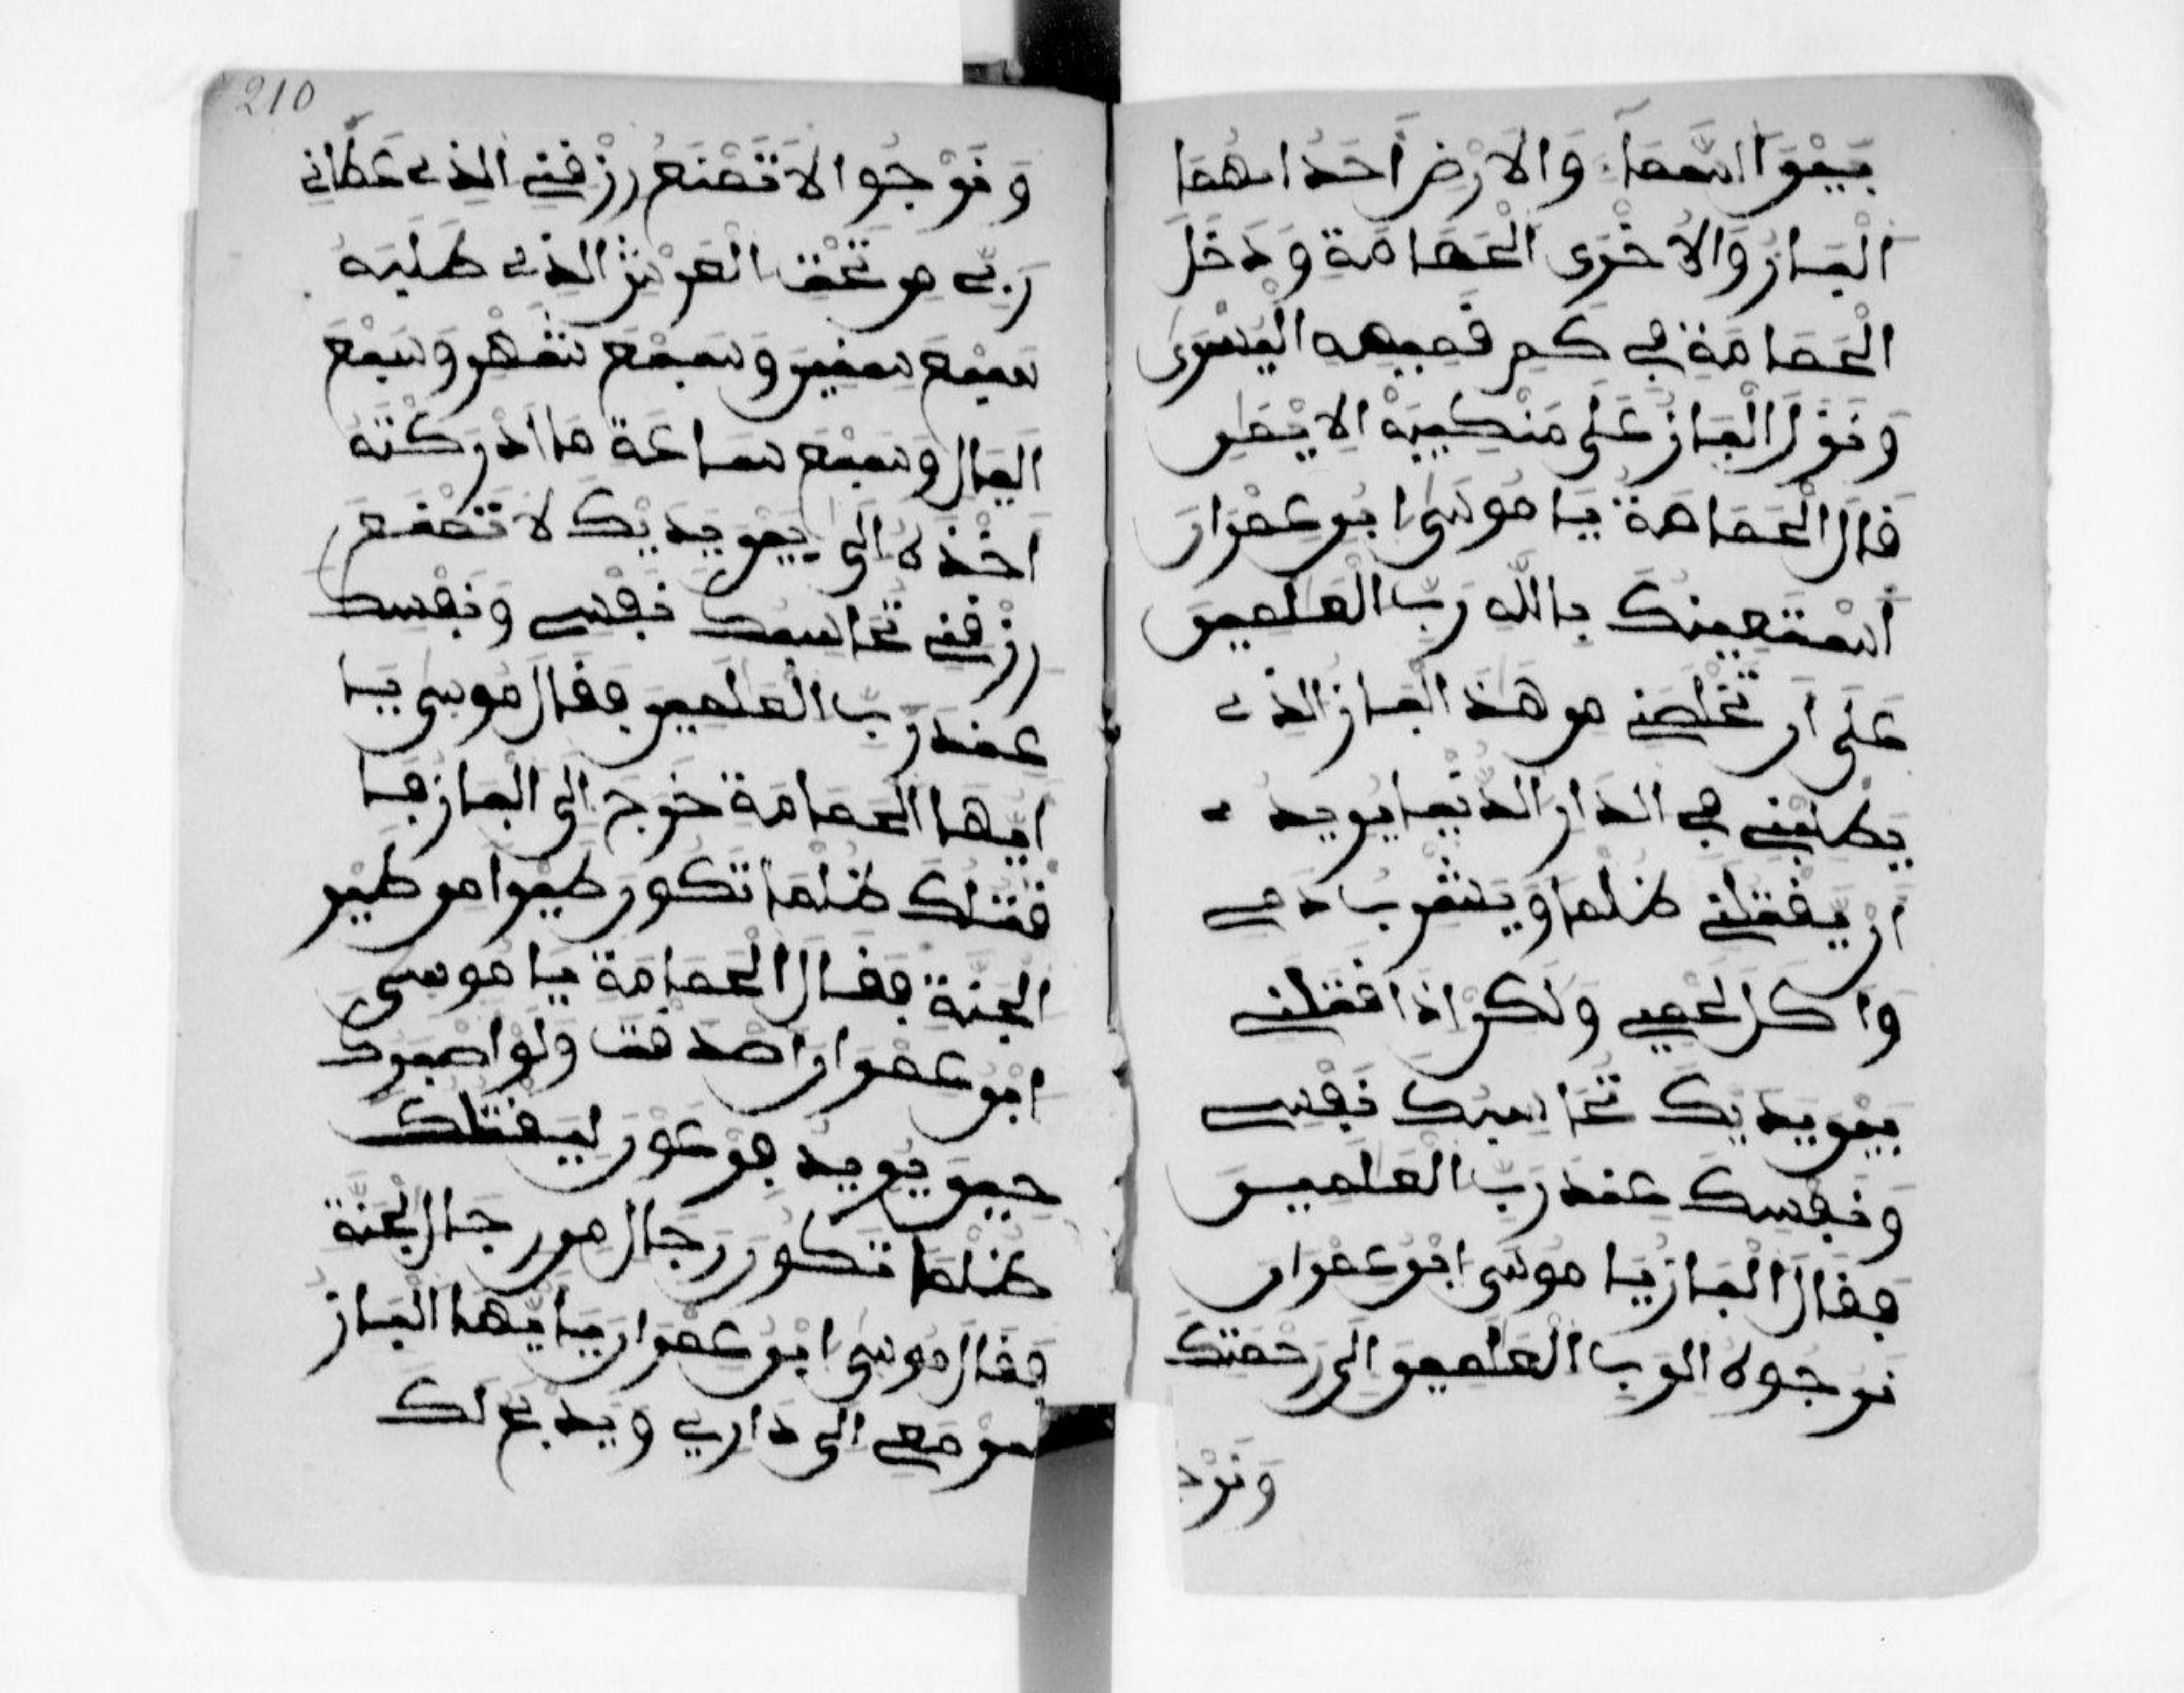 بَيْنَ السَّمَاءِ وَالْاَرْضِ اَحَدُاهُمَا
الْبَازُ وَالْاُخْرَى الْحَمَامَةُ وَدَخَلَ
الْحَمَامَةُ فِي كُمِّ قَمِيصِهِ الْيُسْرَى
وَنَزَلَ الْبَازُ عَلَى مَنْكِبَيْهِ الْاَيْمَنِ
قَالَ الْحَمَامَةُ يَا مُوسَى ابْنُ عِمْرَانَ
اَسْتَعِينُكَ بِاللهِ رَبِّ الْعَلَمِينَ
عَلَى اَنْ تُخَلِّصَنِي مِنْ هَذَ الْبَازِ الَّذِي
يَطْلُبُنِي فِي الدَّارِ الدُّنْيَا يُرِيدُ
اَنْ يَقْتُلَنِي ظُلْمًا وَيَشْرَبُ دَمِي
وَاكُلَ لَحْمِي وَلَكِنْ اِذَا قَتَلَنِي
بَيْنَ يَدَيْكَ تُحَاسِبُكَ نَفْسِي
وَنَفْسُكَ عِنْدَ رَبِّ الْعَلَمِينَ
فَقَالَ الْبَازُ يَا مُوسَى ابْنُ عِمْرَانَ
نرجوه الرب الْعَلَمِينَ الى رحمتك
وَنَرْجـ
210
وَنَرْجُوا لَا تَمْنَعُ رِزْقِنِي الَّذِي عَطَانِي
رَبِّي مِنْ تَحْتِ الْعَرْشِ الَّذِي طَلَبَهُ
سَبْعَ سِنِينَ وَسَبْعَ شَهْرٍ وَسَبْعَ
اليال وَسَبْعَ سَاعَةً مَا اَدْرَكْتُهُ
اخذه الى بين يَدَيْكَ لَا تَمْنَعُ
رِزْقِنِي تُحَاسِبُكَ نَفْسِي وَنَفْسُكَ
عِنْدَ رَبِّ الْعَلَمِينَ فَقَالَ مُوسَى يَا
اَيُّهَا الْحَمَامَةُ خرج الى الْبَازِ فَا
قَتَلَكَ ظُلْمًا تَكُونُ طَيْرًا مِنْ طَيْرِ
الْجَنَّةِ فَقَالَ الْحَمَامَةُ يَا مُوسَى
ابْنُ عِمْرَانَ اصدقت وَلَوْ اصبرك
حِينَ يُرِيدُ فِرْعَوْنُ لِيَقْتُلَكَ
ظُلْمًا تَكُونُ رِجَالَ مِنْ رِجَالِ الْجَنَّةِ
فَقَالَ مُوسَى ابْنُ عِمْرَانَ يَا اَيُّهَا الْبَازُ
مَعِي اِلَى دَارِي وَيَذْبَحُ لَكَ